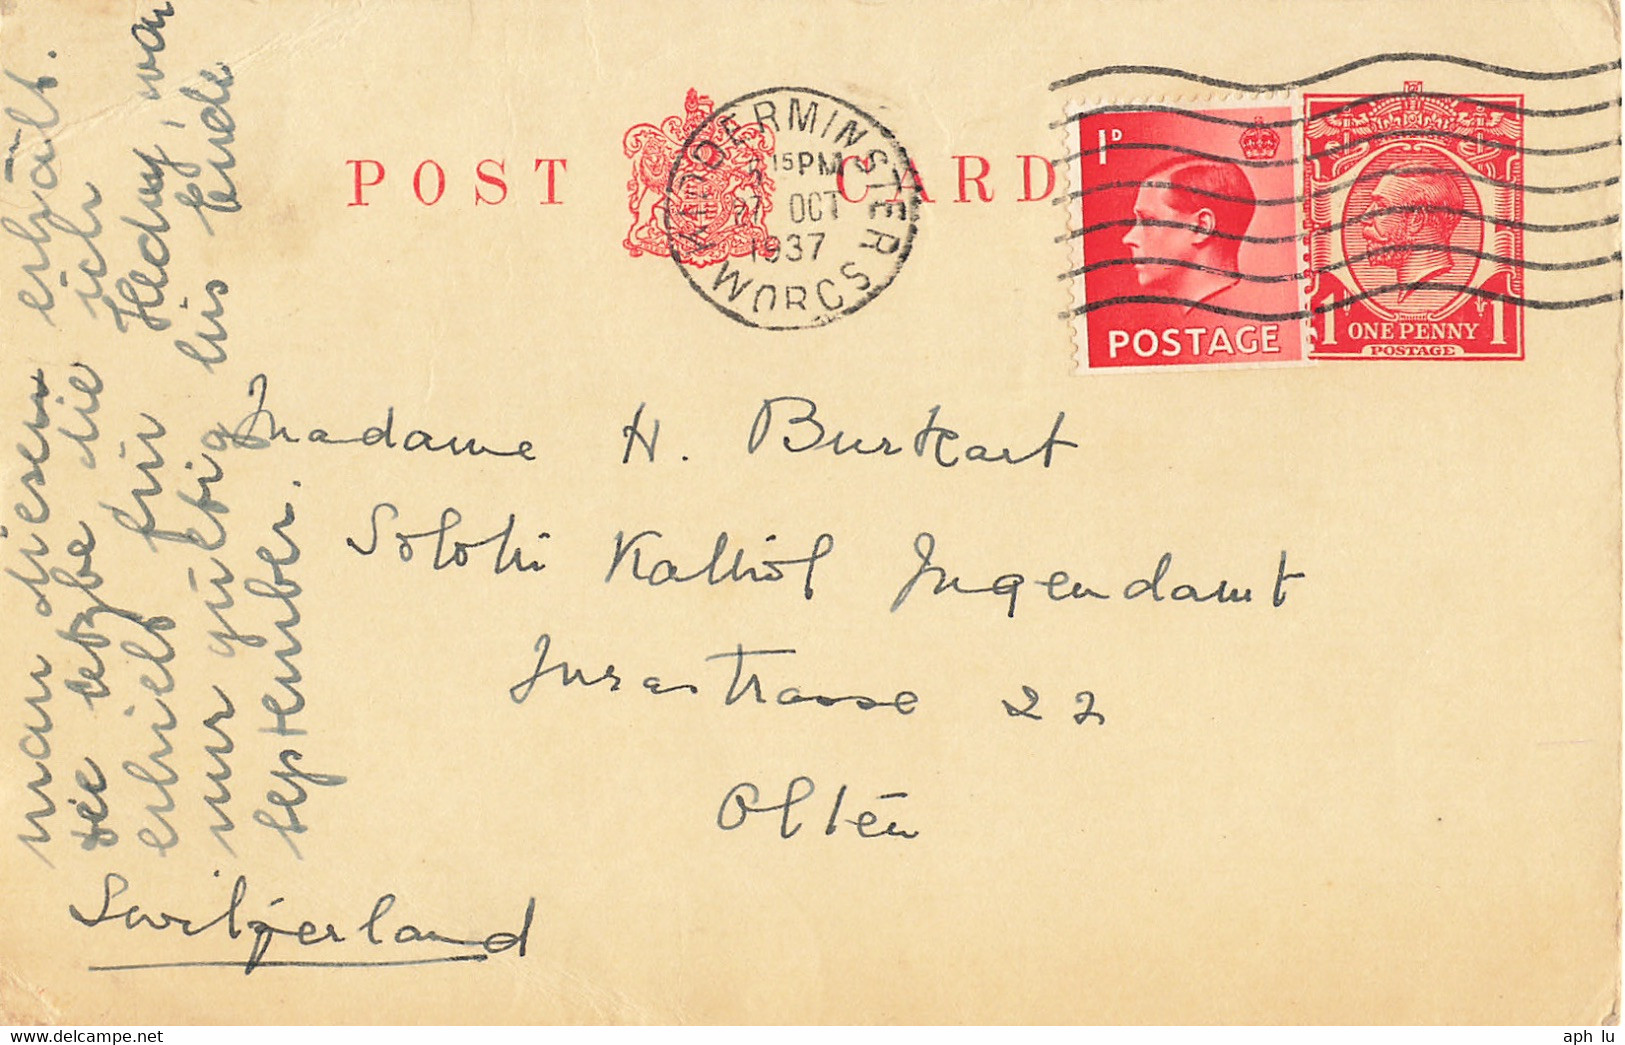 POST CARD
KIDDERMINSTER
15 PM
27 OCT
1937
WORCS
1D
POSTAGE
1 ONE PENNY 1
POSTAGE
man diesen erhält.
die letzte die ich
erhielt für Hedwy, war
nur gültig bis Ende
September.
Madame H. Burkart
Soloth Kathol Jugendamt
Jurastrasse 22
Olten
Switzerland
aph lu